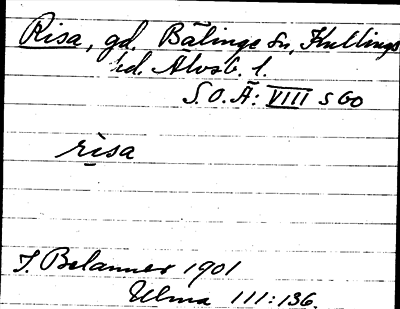 Risa, gd. Bälinge sn, Kullings
hd. Älvsb. l.
S.O.Ä: VIII s 60
risa
J. Belanner 1901
Ulma 111:136.